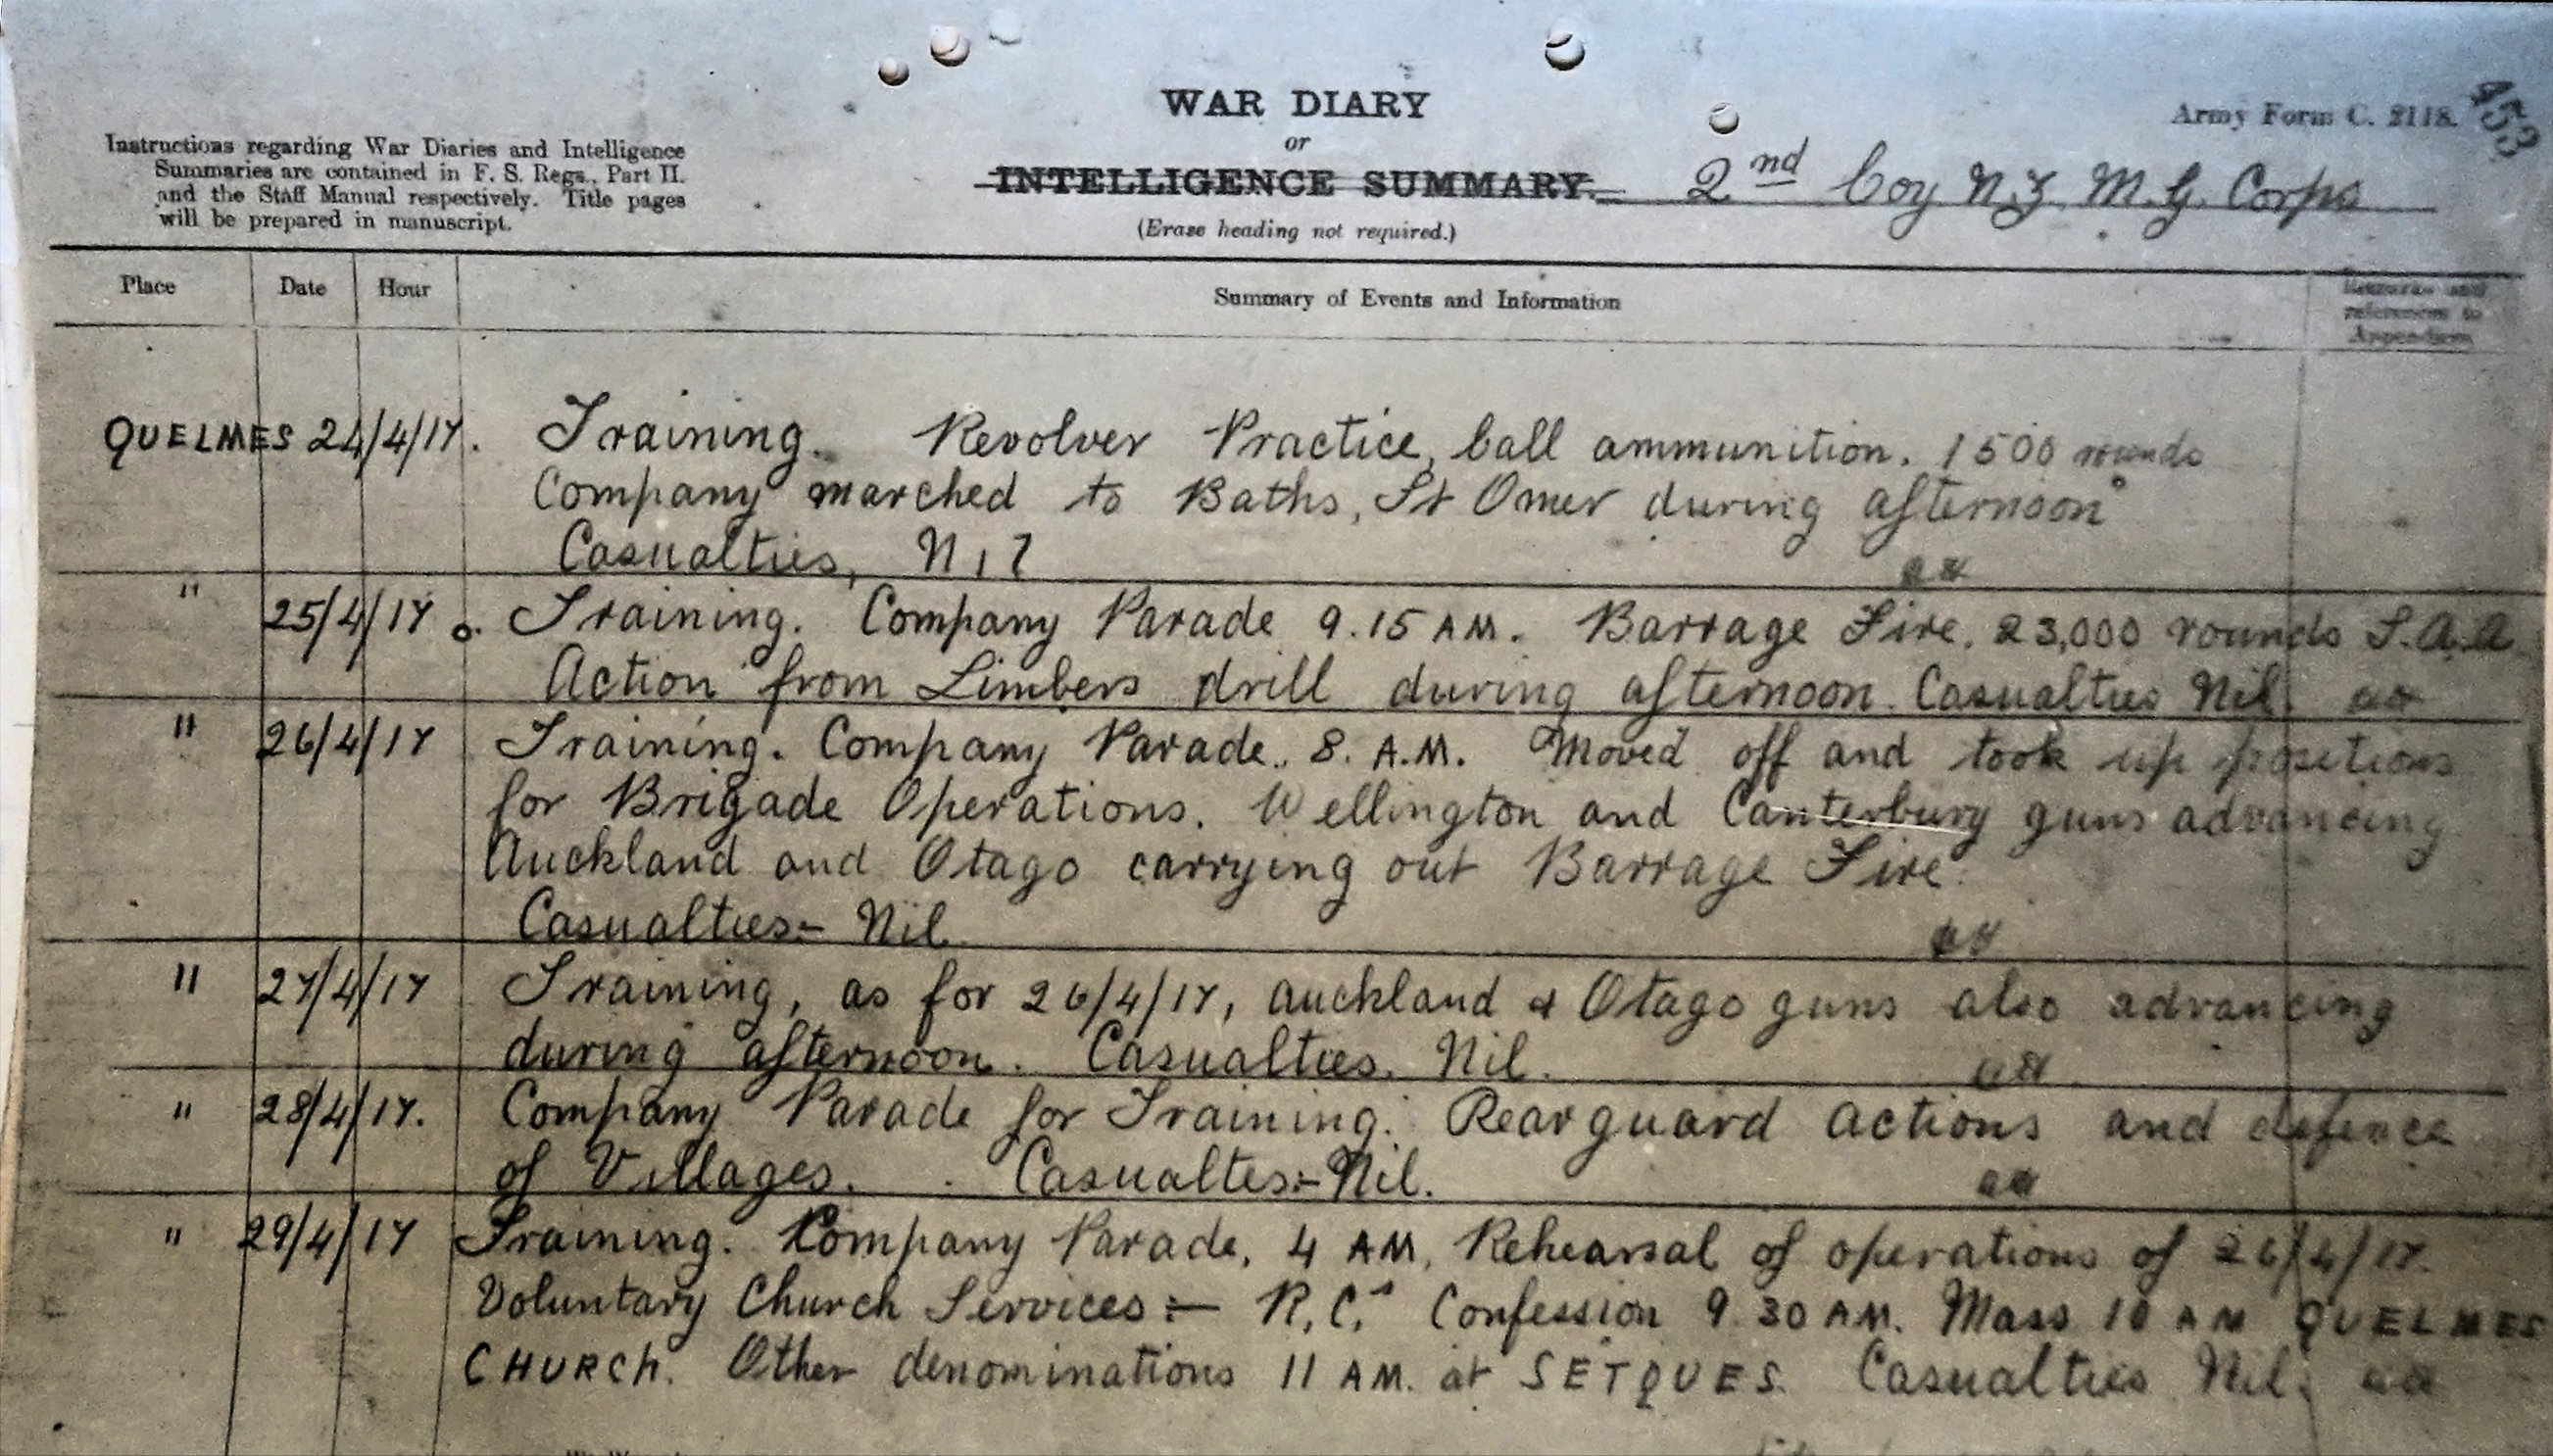 WAR DIARY
or
INTELLIGENCE SUMMARY.
(Erase heading not required.)
Instructions regarding War Diaries and Intelligence
Summaries are contained in F. S. Regs., Part II.
and the Staff Manual respectively. Title pages
will be prepared in manuscript.
Army Form C. 2118.
453
2nd Coy N.Z. M.G. Corps
Place Date Hour Summary of Events and Information Remarks and
references to
Appendices
QUELMES 24/4/17. Training. Revolver Practice, ball ammunition. 1500 rounds
Company marched to Baths, St Omer during afternoon
Casualties, Nil
" 25/4/17. Training. Company Parade 9.15 AM. Barrage Fire. 23,000 rounds S.A.A
Action from Limbers drill during afternoon. Casualties Nil.
" 26/4/17 Training. Company Parade. 8. A.M. Moved off and took up positions
for Brigade Operations. Wellington and Canterbury guns advancing
Auckland and Otago carrying out Barrage Fire.
Casualties:- Nil.
" 27/4/17 Training, as for 26/4/17, Auckland & Otago guns also advancing
during afternoon. Casualties. Nil.
" 28/4/17. Company Parade for Training. Rearguard actions and defence
of Villages. Casualtes:- Nil.
" 29/4/17 Training. Company Parade, 4 AM, Rehearsal of operations of 26/4/17.
Voluntary Church Services:- R.C.s Confession 9.30 AM. Mass 10 AM QUELMES
CHURCH. Other denominations 11 AM. at SETQUES. Casualties Nil.